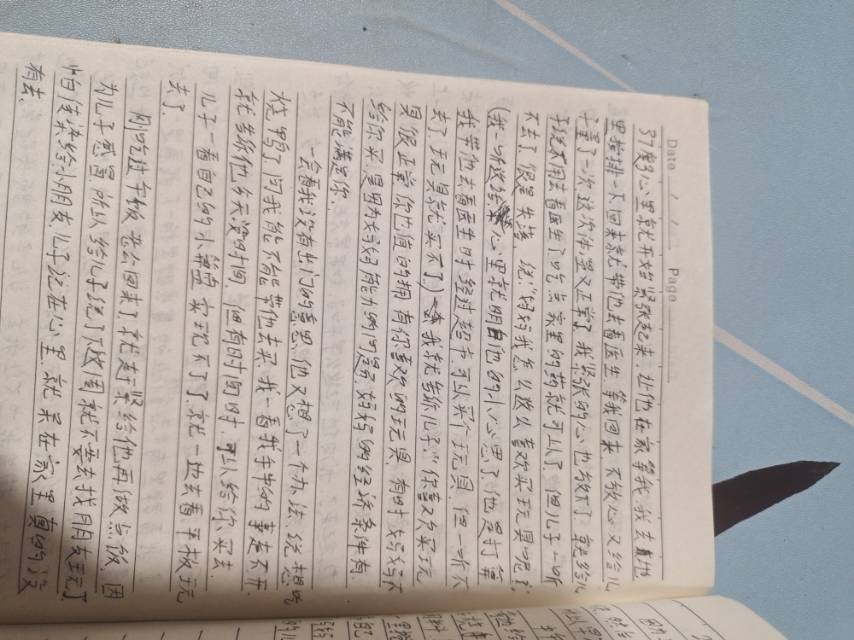 Date / / Page
37度多心里就开始紧张起来,让他在家等我,我去
里安排一下回来就带他去看医生,等我回来,不放心又给儿
子量了一次,这次体温又正常了,我紧张的心也放下了,就给儿
子说不用去看医生了,吃点家里的药就可以了,但儿子一听
不去了,很是失落,说:“妈妈我怎么这么喜欢买玩具呢?”
(我听这话 心里就明白他的小心思了,他是打算
我带他去看医生时,经过超市可以买个玩具,但一听不
去了,玩具就买不了)我就告诉儿子:“你喜欢买玩
具很正常,你也值的拥有你喜欢的玩具,有时妈妈不
给你买,是因为妈妈能力的问题,妈妈的经济条件有
不能满足你。
一会看我没有出门的意思,他又想了一个办法,说想吃
烤鸭了,问我能不能带他去买,我一看我手中的事走不开
就告诉他今天没时间,但有时间时,可以给你买去,
儿子一看自己的小算盘实现不了了,就一边去看平板玩
去了。
刚吃过午饭,老公回来了,我就赶紧给他再做点饭,因
为儿子感冒,所以给儿子说了,这周就不要去找朋友玩了,
怕传染给小朋友,儿子记在心里,就呆在家里真的没
有去。